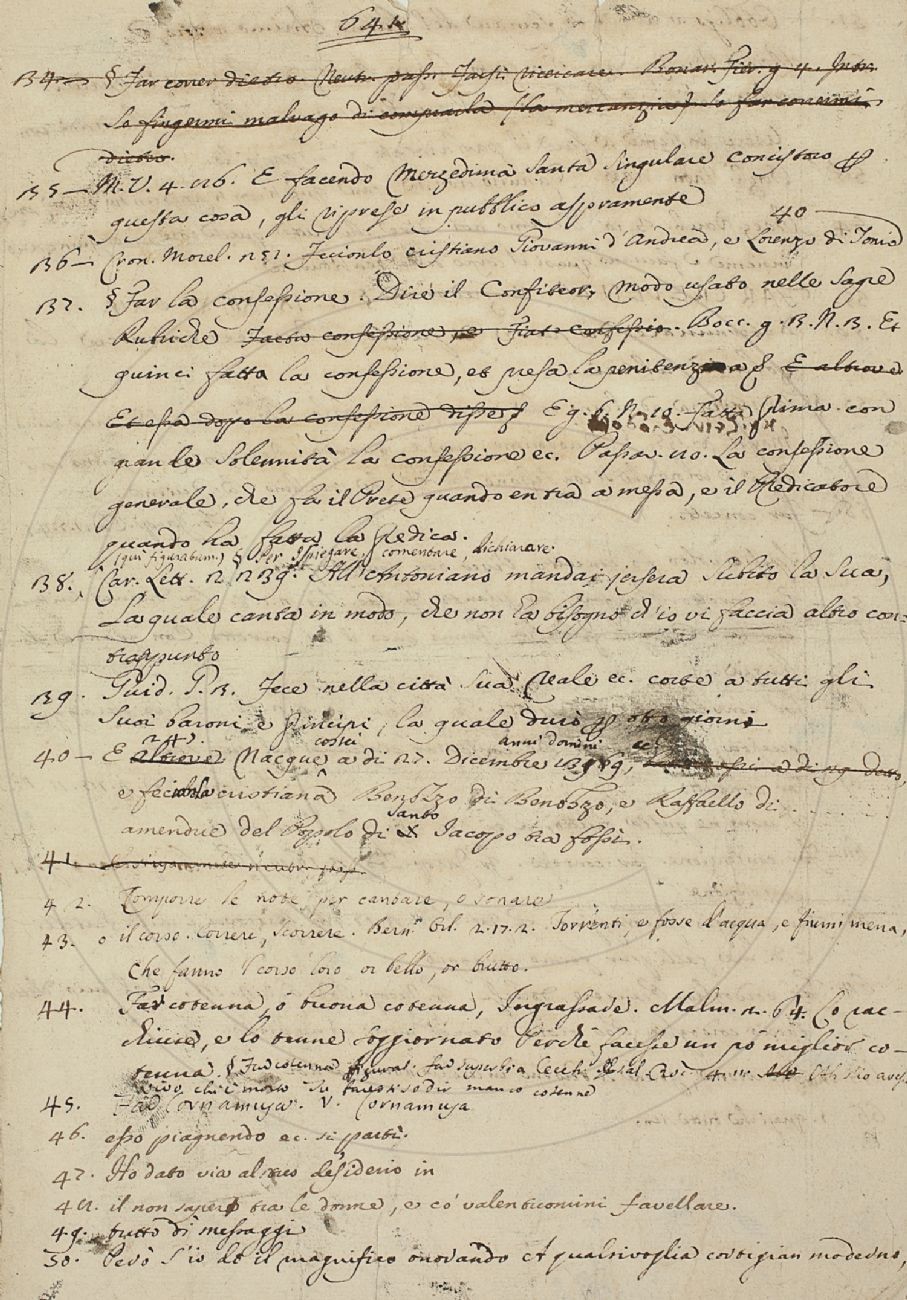 641
134. § Far correr dietro. Neutr. pass. Farsi ricercare. Bonar. Fier. g. 4. Intr.
Io fingermi malvago di comprarla (la mercanzia) Io far corrermi
dietro.
135 — M. V. 4. 26. E facendo Mezedima Santa singulare concistoro p
questa cosa, gli riprese in pubblico aspramente
40
136 — Cron. Morel. 251. Fecionlo cristiano Giovanni d'Andrea, e Lorenzo di Tonio
137. § Far la confessione. Dire il Confiteor, modo usato nelle Sagre
Rubriche Facta confessione, Bocc. g. 1. N. 1. Et
quinci fatta la confessione, et presa la penitenzia E altrove
Et essa dopo la confessione disse E g. 6. N. 10. Fatta prima con
grande solennità la confessione ec. Passav. 110. La confessione
generale, che fa il Prete quando entra a messa, e il Predicatore
quando ha fatta la Predica.
(qui figuratam.) § Per Ispiegare, comentare, dichiarare.
138. Car. Lett. 2. 239. All'Antoniano mandai jersera subito la sua,
La quale canta in modo, che non ha bisogno ch'io vi faccia altro con=
trappunto
139. Guid. G. 1. Fece nella città sua Reale ec. corte a tutti gli
suoi baroni e Principi, la quale durò p otto giorni
241. costei anni domini
40 — E altrove Nacque a dì 27. Dicembre ec a dì 29 detto,
e fecionla cristiana Benozzo di Benozzo, e Raffaello di
amendue del Popolo di Santo Jacopo tra fossi.
41.
42. Comporre le note per cantare, o sonare
43. o il corso. Correre, scorrere. Bern. Orl. 2. 17. 2. Torrenti, e fosse d'acqua, e fiumi mena,
Che fanno 'l corso loro or bello, or brutto.
44. Far cotenna, o buona cotenna, Ingrassare. Malm. 2. 64. Lo rac-
chiuse, e lo tenne soggiornato Perchè facesse un po' miglior co-
tenna. § Far cotenna figurat. far superbia Cecch. Esal. Cr. 4. Oh s'io avess
vivo, chi è morto Io faresti so dir manco cotenna
45. Far Cornamusa. V. Cornamusa
46. esso piagnendo ec. si partì.
47. Ho dato via al mio desiderio in
48. il non sapere tra le donne, e co' valentuomini favellare.
49. tutto dì messaggi
50. Però s'io do il magnifico onorando A qualsivoglia cortigian moderno,